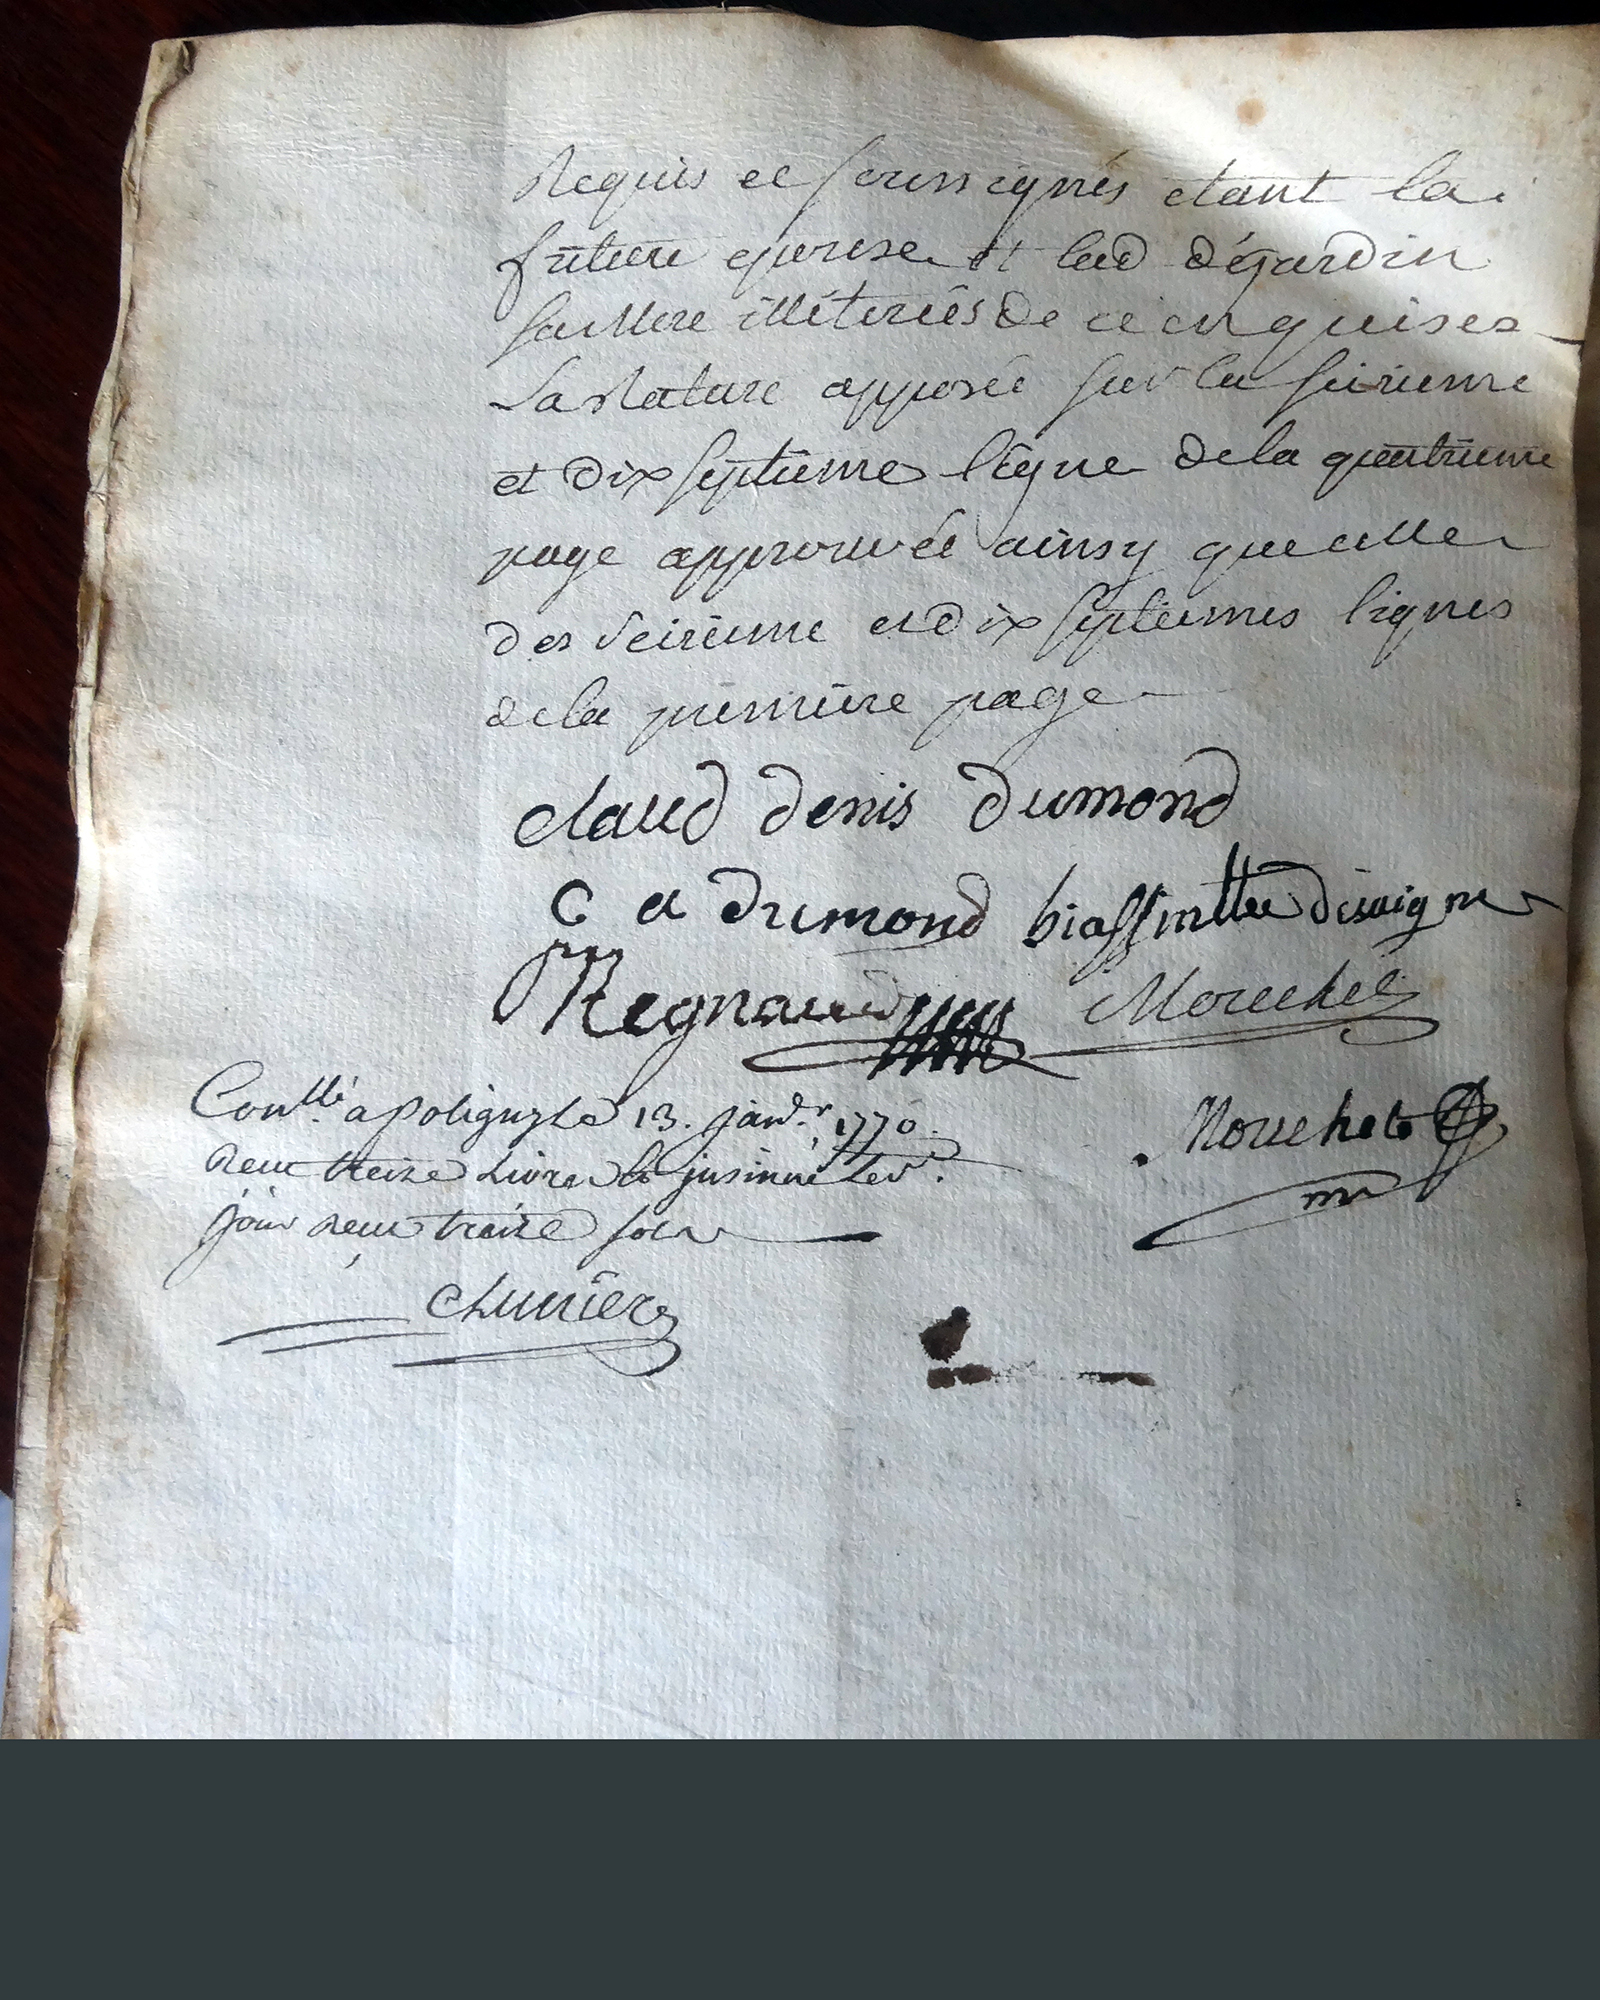 Requis et soussignés etant la
future epouse et lad dégardin
sa Mere illiterées de ce enquises
La Rature apposée sur la seizieme
et dix septieme ligne de la quatrieme
page approuvée ainsy que celle
des seizieme et dix septiemes lignes
de la premiere page
claud denis dumond
C a dumond biassinette desvigne
Regnaud Mouchet
Conllé. a Poligny Le 13. janvr. 1770.
Mouchet
Reçu treize Livres insinué led.
jour Reçu treize sols